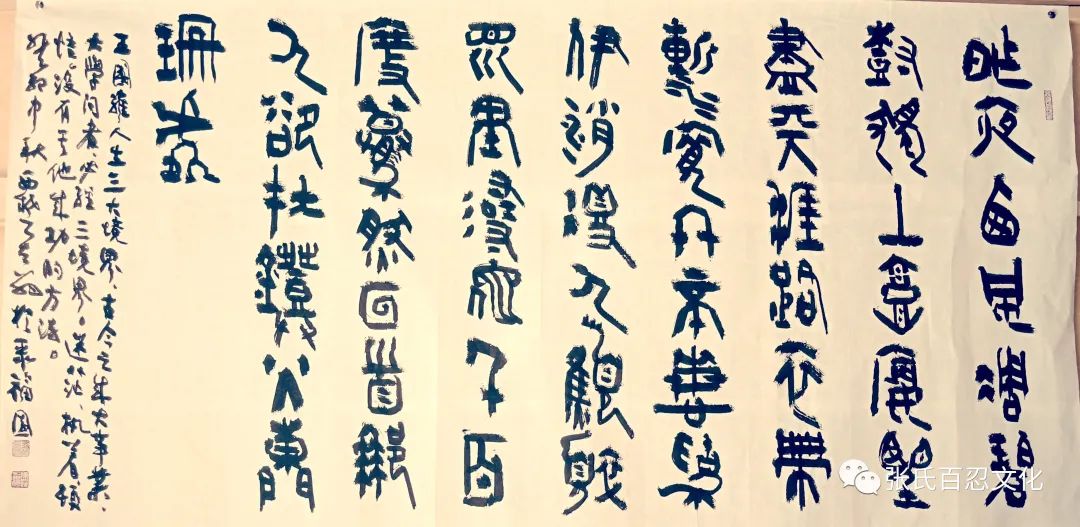 昨夜西風凋碧
樹獨上高樓望
盡天涯路衣帶
漸寬終不悔爲
伊消得人憔悴
眾里尋他千百
度驀然回首那
人卻在燈火闌
珊處
王國維人生三大境界、古今之成大事業、
大學問者、必經三境界。迷茫、执着、頓
悟。没有其他成功的方法。
癸卯中秋 於 福園
张氏百忍文化